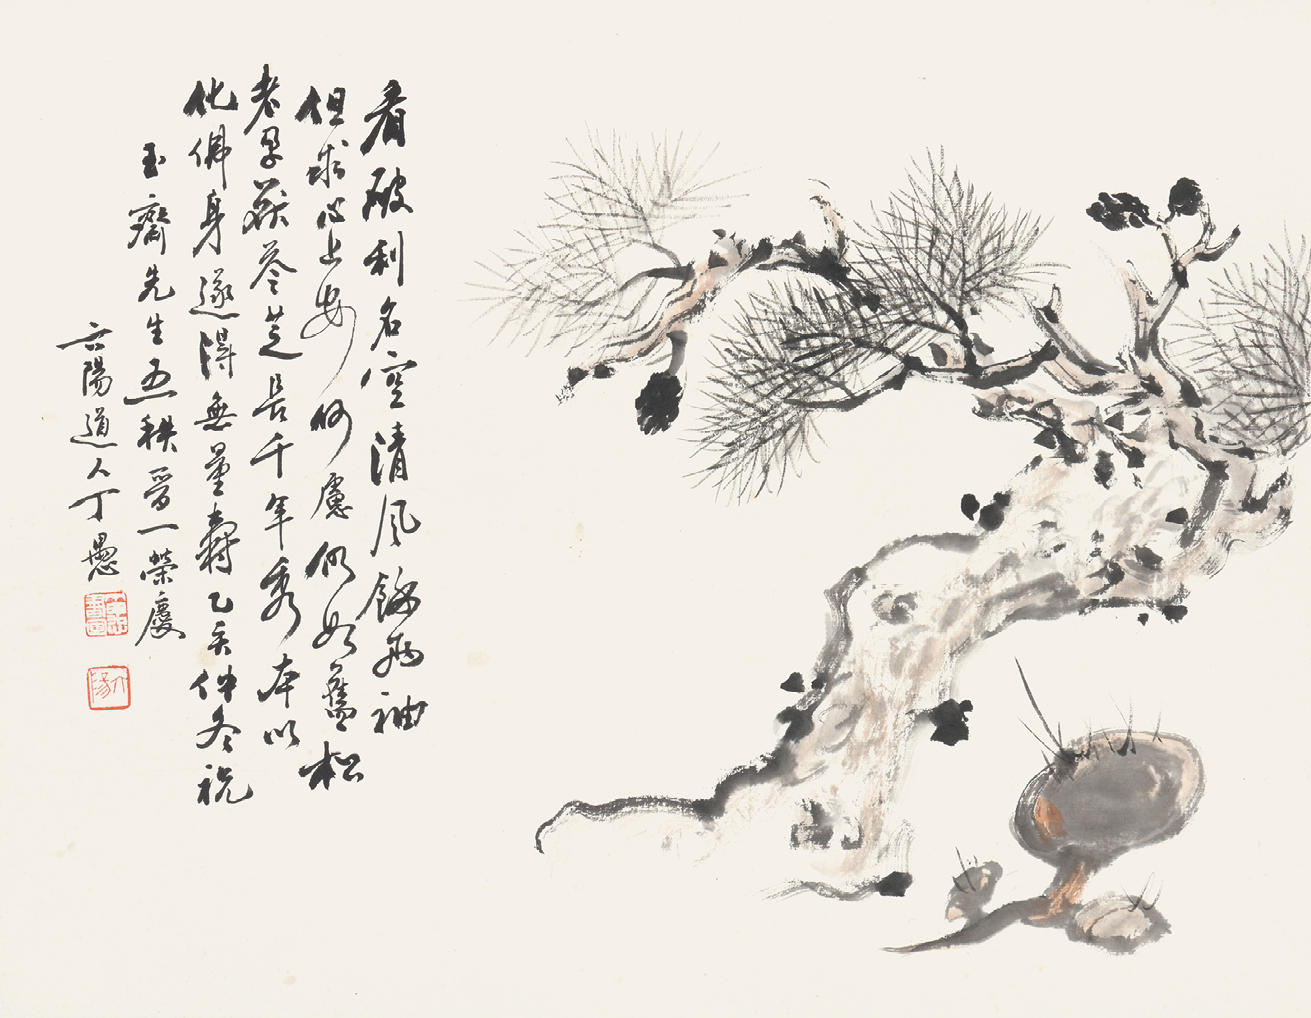 看破利名空清風餘兩袖
但求心上安何慮仍如舊松
老孕茯苓芝長千年秀本以
化佛身遂得無量壽乙亥仲冬祝
玉齋先生五秩晉一榮慶
六陽道人丁愚